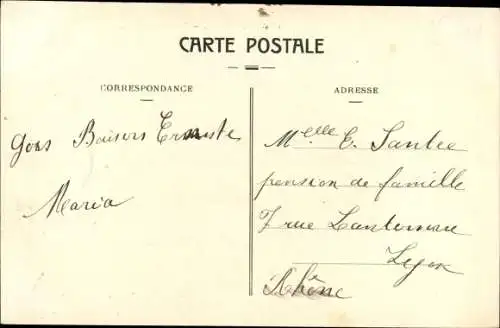 CARTE POSTALE
CORRESPONDANCE
ADRESSE
Gros Baisers Ernuste
Maria
Melle E. Santee
pension de famille
7 rue Lanterneu
Lyon
Rhône